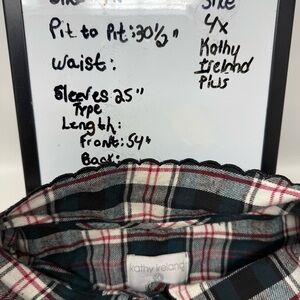 Size
4x
Kathy
Ireland
Plus
Pit to Pit: 30½"
Waist:
Sleeves 25"
Type
Length:
Front: 54"
Back:
kathy ireland